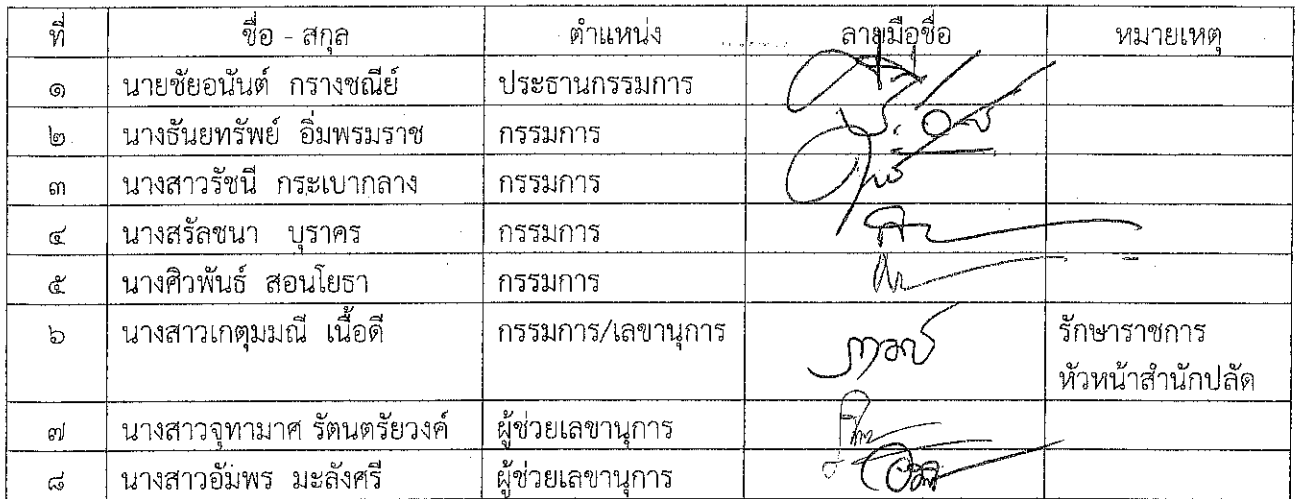 ที่ ชื่อ - สกุล ตำแหน่ง ลายมือชื่อ หมายเหตุ
๑ นายชัยอนันต์ กรางชณีย์ ประธานกรรมการ
๒ นางธันยทรัพย์ อิ่มพรมราช กรรมการ
๓ นางสาวรัชนี กระเบากลาง กรรมการ
๔ นางสรัลชนา บุราคร กรรมการ
๕ นางศิวพันธ์ สอนโยธา กรรมการ
๖ นางสาวเกตุมมณี เนื้อดี กรรมการ/เลขานุการ รักษาราชการ
หัวหน้าสำนักปลัด
๗ นางสาวจุฑามาศ รัตนตรัยวงค์ ผู้ช่วยเลขานุการ
๘ นางสาวอัมพร มะลังศรี ผู้ช่วยเลขานุการ